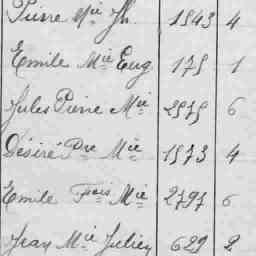 Pierre Mie Jh. 1843 4
Emile Mie Eug 179 1
Jules Pierre Mie 2979 6
Désiré Pre Mie 1973 4
Emile Fois Mie 2797 6
Jean Mie Julien 629 2